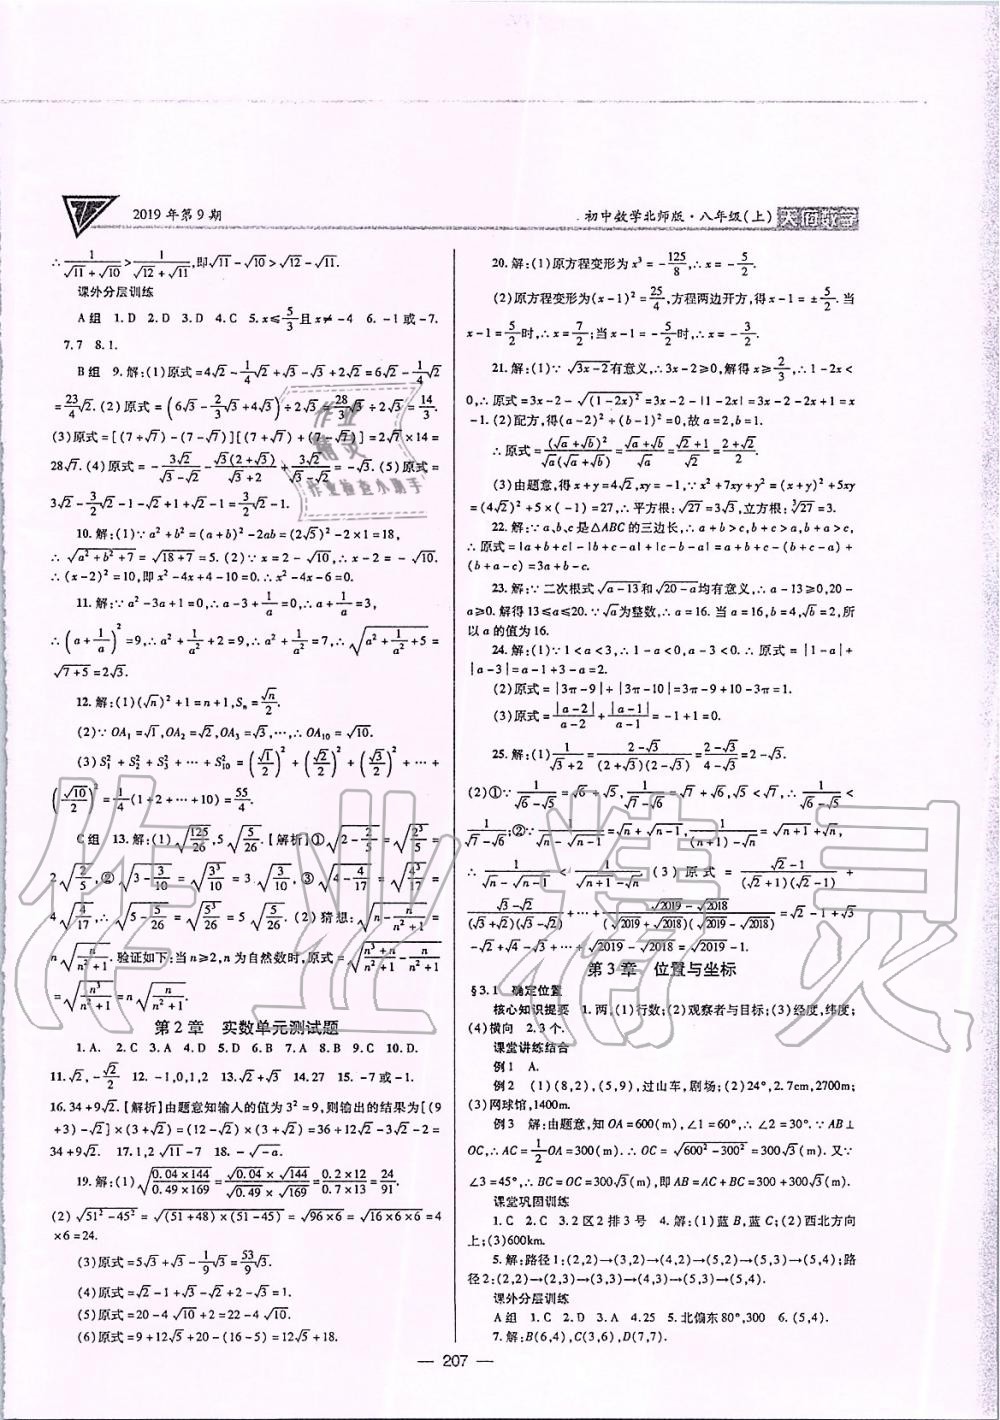 2019年第9期
初中数学北师版·八年级(上)
∴1/(√11+√10)>1/(√12+√11),即√11-√10>√12-√11.
课外分层训练
A组 1.D 2.D 3.D 4.C 5.x≤5/3且x≠-4 6.-1或-7.
7.7 8.1.
B组 9.解:(1)原式=4√2-1/4√2+√3-√3+2√2=6√2-1/4√2
=23/4√2.(2)原式=(6√3-2/3√3+4√3)÷2√3=28/3√3÷2√3=14/3.
(3)原式=[(7+√7)-(7-√7)][(7+√7)+(7-√7)]=2√7×14=
28√7.(4)原式=-3√2/(√3-√2)-√3(2+√3)/√3+3√2/(√3-√2)=-√3.(5)原式=
3√2-3/2√2-1-√2+1+√2-1=3/2√2-1.
10.解:(1)∵a²+b²=(a+b)²-2ab=(2√5)²-2×1=18,
∴√(a²+b²+7)=√(18+7)=5.(2)∵x=2-√10,∴x-2=-√10.
∴(x-2)²=10,即x²-4x+4=10.∴x²-4x-6=0.
11.解:∵a²-3a+1=0,∴a-3+1/a=0,∴a+1/a=3,
∴(a+1/a)²=9,∴a²+1/a²+2=9,∴a²+1/a²=7,∴√(a²+1/a²+5)=
√(7+5)=2√3.
12.解:(1)(√n)²+1=n+1,Sₙ=√n/2.
(2)∵OA₁=√1,OA₂=√2,OA₃=√3,…,∴OA₁₀=√10.
(3)S₁²+S₂²+S₃²+…+S₁₀²=(√1/2)²+(√2/2)²+(√3/2)²+…+
(√10/2)²=1/4(1+2+…+10)=55/4.
C组 13.解:(1)√(125/26),5√(5/26).[解析]①√(2-2/5)=√(2³/5)=
2√(2/5),②√(3-3/10)=√(3³/10)=3√(3/10),③√(4-4/17)=√(4³/17)=
4√(4/17),∴√(5-5/26)=√(5³/26)=5√(5/26).(2)猜想:√(n-n/(n²+1))=
n√(n/(n²+1)).验证如下:当n≥2,n为自然数时,原式=√((n³+n)/(n²+1)-n/(n²+1))
=√(n³/(n²+1))=n√(n/(n²+1)).
第2章 实数单元测试题
1.A. 2.C 3.A 4.D 5.D 6.D 7.A 8.B 9.C 10.D.
11.√2,-√2/2 12.-1,0,1,2 13.√2+√3 14.27 15.-7或-1.
16.34+9√2.[解析]由题意知输人的值为3²=9,则输出的结果为[(9
+3)-√2]×(3+√2)=(12-√2)×(3+√2)=36+12√2-3√2-2=
34+9√2. 17.1,2√11-7 18.-√(-a).
19.解:(1)√((0.04×144)/(0.49×169))=(√0.04×√144)/(√0.49×√169)=(0.2×12)/(0.7×13)=24/91.
(2)√(51²-45²)=√((51+48)×(51-45))=√(96×6)=√(16×6×6)=4
×6=24.
(3)原式=5√3+√3-1/9√3=53/9√3.
(4)原式=√2-1+√3-√2+2-√3=1.
(5)原式=20-4√10+2=22-4√10.
(6)原式=9+12√5+20-(16-5)=12√5+18.
20.解:(1)原方程变形为x³=-125/8,∴x=-5/2.
(2)原方程变形为(x-1)²=25/4,方程两边开方,得x-1=±5/2.当
x-1=5/2时,∴x=7/2;当x-1=-5/2时,∴x=-3/2.
21.解:(1)∵√(3x-2)有意义,∴3x-2≥0,解得x≥2/3,∴1-2x<
0,∴原式=3x-2-√((1-2x)²)=3x-2-|1-2x|=3x-2-2x+1=x
-1.(2)配方,得(a-2)²+(b-1)²=0,故a=2,b=1.
∴原式=(√a+√b)²/(√a(√a+√b))=(√a+√b)/√a=(√2+1)/√2=(2+√2)/2.
(3)由题意,得x+y=4√2,xy=-1,∵x²+7xy+y²=(x+y)²+5xy
=(4√2)²+5×(-1)=27,∴平方根:√27=3√3,立方根:∛27=3.
22.解:∵a,b,c是△ABC的三边长,∴a+b>c,b+c>a,b+a>c,
∴原式=|a+b+c|-|b+c-a|+|c-b-a|=a+b+c-(b+c-a)+
(b+a-c)=3a+b-c.
23.解:∵二次根式√(a-13)和√(20-a)均有意义,∴a-13≥0,20-
a≥0.解得13≤a≤20.∵√a为整数,∴a=16.当a=16,b=4,√b=2,所
以a的值为16.
24.解:(1)∵1<a<3,∴1-a<0,a-3<0.∴原式=|1-a|+
|a-3|=a-1+3-a=2.
(2)原式=|3π-9|+|3π-10|=3π-9+10-3π=1.
(3)原式=|a-2|/(a-2)+|a-1|/(a-1)=-1+1=0.
25.解:(1)1/(√3+2)=(2-√3)/((2+√3)(2-√3))=(2-√3)/(4-√3)=2-√3.
(2)①∵1/(√6-√5)=√6+√5,1/(√7-√6)=√7+√6,√5<√7,∴1/(√6-√5)<
1/(√7-√6);②∵1/(√n-√(n-1))=√n+√(n-1),1/(√(n+1)-√n)=√(n+1)+√n,
∴1/(√n-√(n-1))<1/(√(n+1)-√n).(3)原式=(√2-1)/((√2+1)(√2-1))+
(√3-√2)/((√3+√2)(√3-√2))+…+(√2019-√2018)/((√2019+√2018)(√2019-√2018))=√2-1+√3
-√2+√4-√3+…+√2019-√2018=√2019-1.
第3章 位置与坐标
§3.1 确定位置
核心知识提要 1.两,(1)行数;(2)观察者与目标;(3)经度,纬度;
(4)横向 2.3个.
课堂讲练结合
例1 A.
例2 (1)(8,2),(5,9),过山车,剧场;(2)24°,2.7cm,2700m;
(3)网球馆,1400m.
例3 解:由题意,知OA=600(m),∠1=60°,∴∠2=30°.∵AB⊥
OC,∴AC=1/2OA=300(m).∴OC=√(600²-300²)=300√3(m).又∵
∠3=45°,∴BC=OC=300√3(m),即AB=AC+BC=300+300√3(m).
课堂巩固训练
1.C 2.C 3.2区2排3号 4.解:(1)蓝B,蓝C;(2)西北方向
上;(3)600km.
5.解:路径1:(2,2)→(3,2)→(4,2)→(5,2)→(5,3)→(5,4);路
径2:(2,2)→(2,3)→(3,3)→(4,3)→(5,3)→(5,4).
课外分层训练
A组 1.C 2.D 3.A 4.25 5.北偏东80°,300 6.(5,4).
7.解:B(6,4),C(3,6),D(7,7).
— 207 —
作业精灵
作业
精灵
作业检查小助手